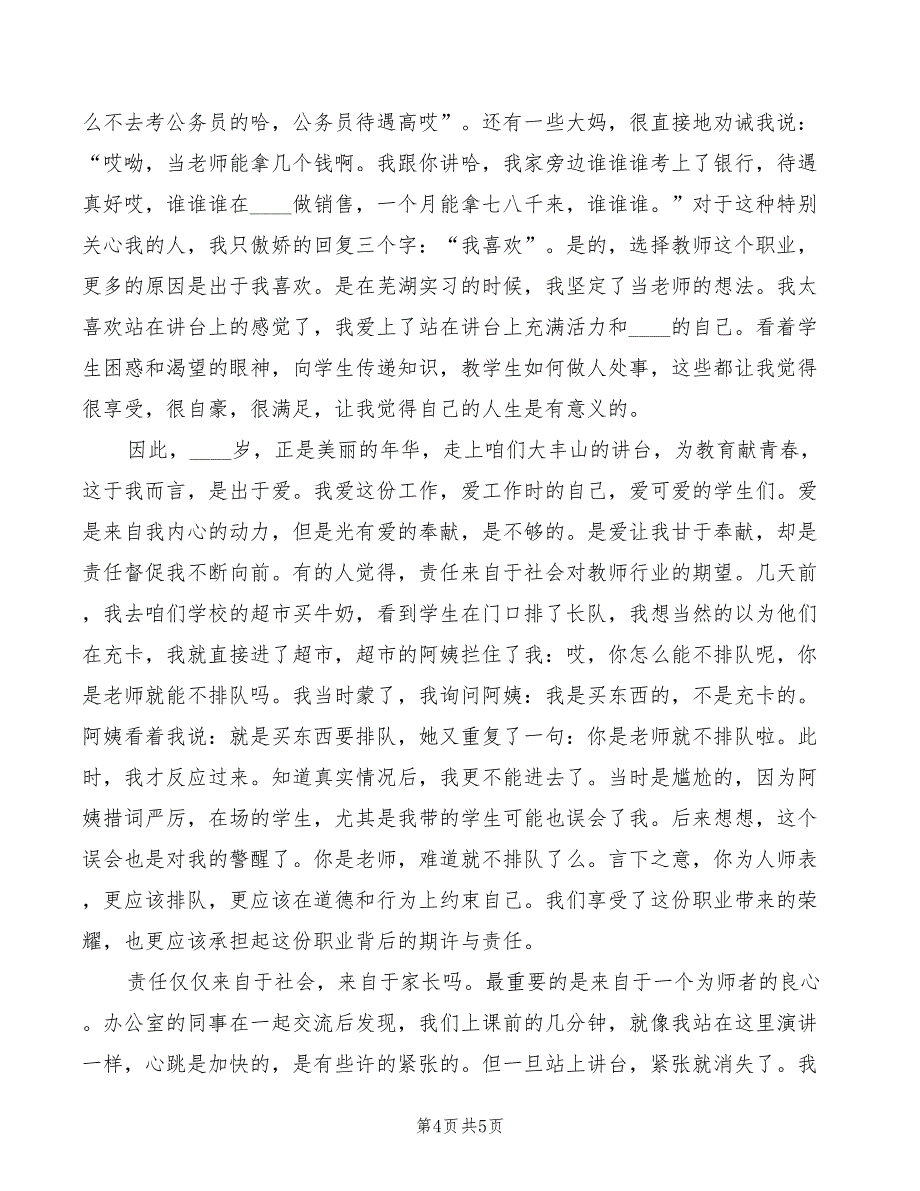 么不去考公务员的哈，公务员待遇高哎”。还有一些大妈，很直接地劝诫我说：
“哎呦，当老师能拿几个钱啊。我跟你讲哈，我家旁边谁谁谁考上了银行，待遇
真好哎，谁谁谁在____做销售，一个月能拿七八千来，谁谁谁。”对于这种特别
关心我的人，我只傲娇的回复三个字：“我喜欢”。是的，选择教师这个职业，
更多的原因是出于我喜欢。是在芜湖实习的时候，我坚定了当老师的想法。我太
喜欢站在讲台上的感觉了，我爱上了站在讲台上充满活力和____的自己。看着学
生困惑和渴望的眼神，向学生传递知识，教学生如何做人处事，这些都让我觉得
很享受，很自豪，很满足，让我觉得自己的人生是有意义的。
因此，____岁，正是美丽的年华，走上咱们大丰山的讲台，为教育献青春，
这于我而言，是出于爱。我爱这份工作，爱工作时的自己，爱可爱的学生们。爱
是来自我内心的动力，但是光有爱的奉献，是不够的。是爱让我甘于奉献，却是
责任督促我不断向前。有的人觉得，责任来自于社会对教师行业的期望。几天前
，我去咱们学校的超市买牛奶，看到学生在门口排了长队，我想当然的以为他们
在充卡，我就直接进了超市，超市的阿姨拦住了我：哎，你怎么能不排队呢，你
是老师就能不排队吗。我当时蒙了，我询问阿姨：我是买东西的，不是充卡的。
阿姨看着我说：就是买东西要排队，她又重复了一句：你是老师就不排队啦。此
时，我才反应过来。知道真实情况后，我更不能进去了。当时是尴尬的，因为阿
姨措词严厉，在场的学生，尤其是我带的学生可能也误会了我。后来想想，这个
误会也是对我的警醒了。你是老师，难道就不排队了么。言下之意，你为人师表
，更应该排队，更应该在道德和行为上约束自己。我们享受了这份职业带来的荣
耀，也更应该承担起这份职业背后的期许与责任。
责任仅仅来自于社会，来自于家长吗。最重要的是来自于一个为师者的良心
。办公室的同事在一起交流后发现，我们上课前的几分钟，就像我站在这里演讲
一样，心跳是加快的，是有些许的紧张的。但一旦站上讲台，紧张就消失了。我
第4页共5页